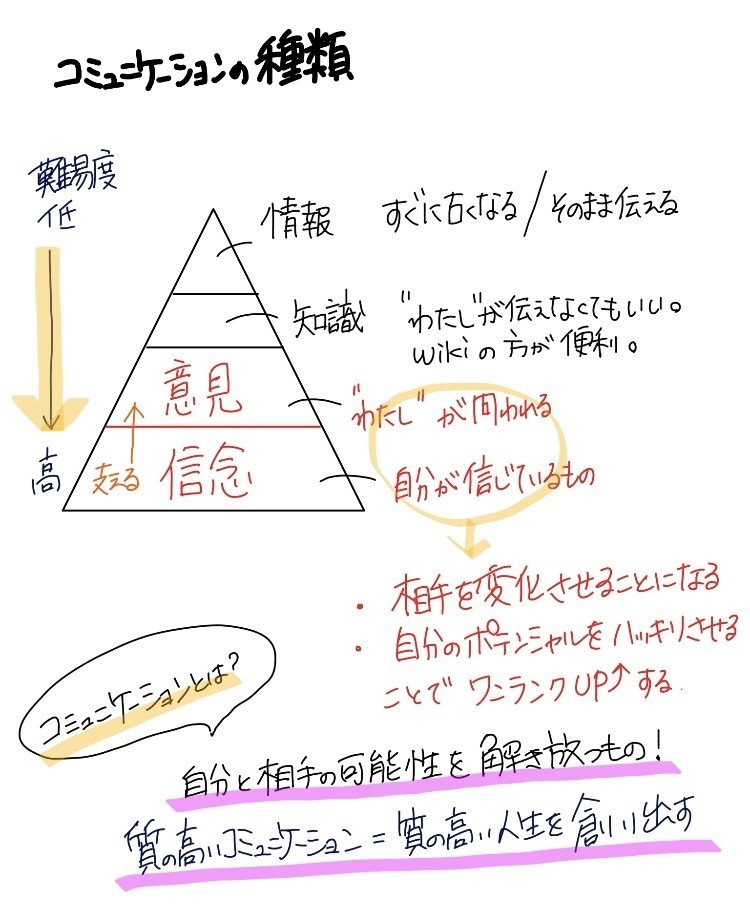 コミュニケーションの種類
難易度
低
情報 すぐに古くなる/そのまま伝える
知識 "わたし"が伝えなくてもいい。
wikiの方が便利。
意見 "わたし"が問われる
高 支える 信念 自分が信じているもの
・相手を変化させることになる
・自分のポテンシャルをハッキリさせる
ことでワンランクUP↑する
コミュニケーションとは?
自分と相手の可能性を解き放つもの!
質の高いコミュニケーション=質の高い人生を創り出す